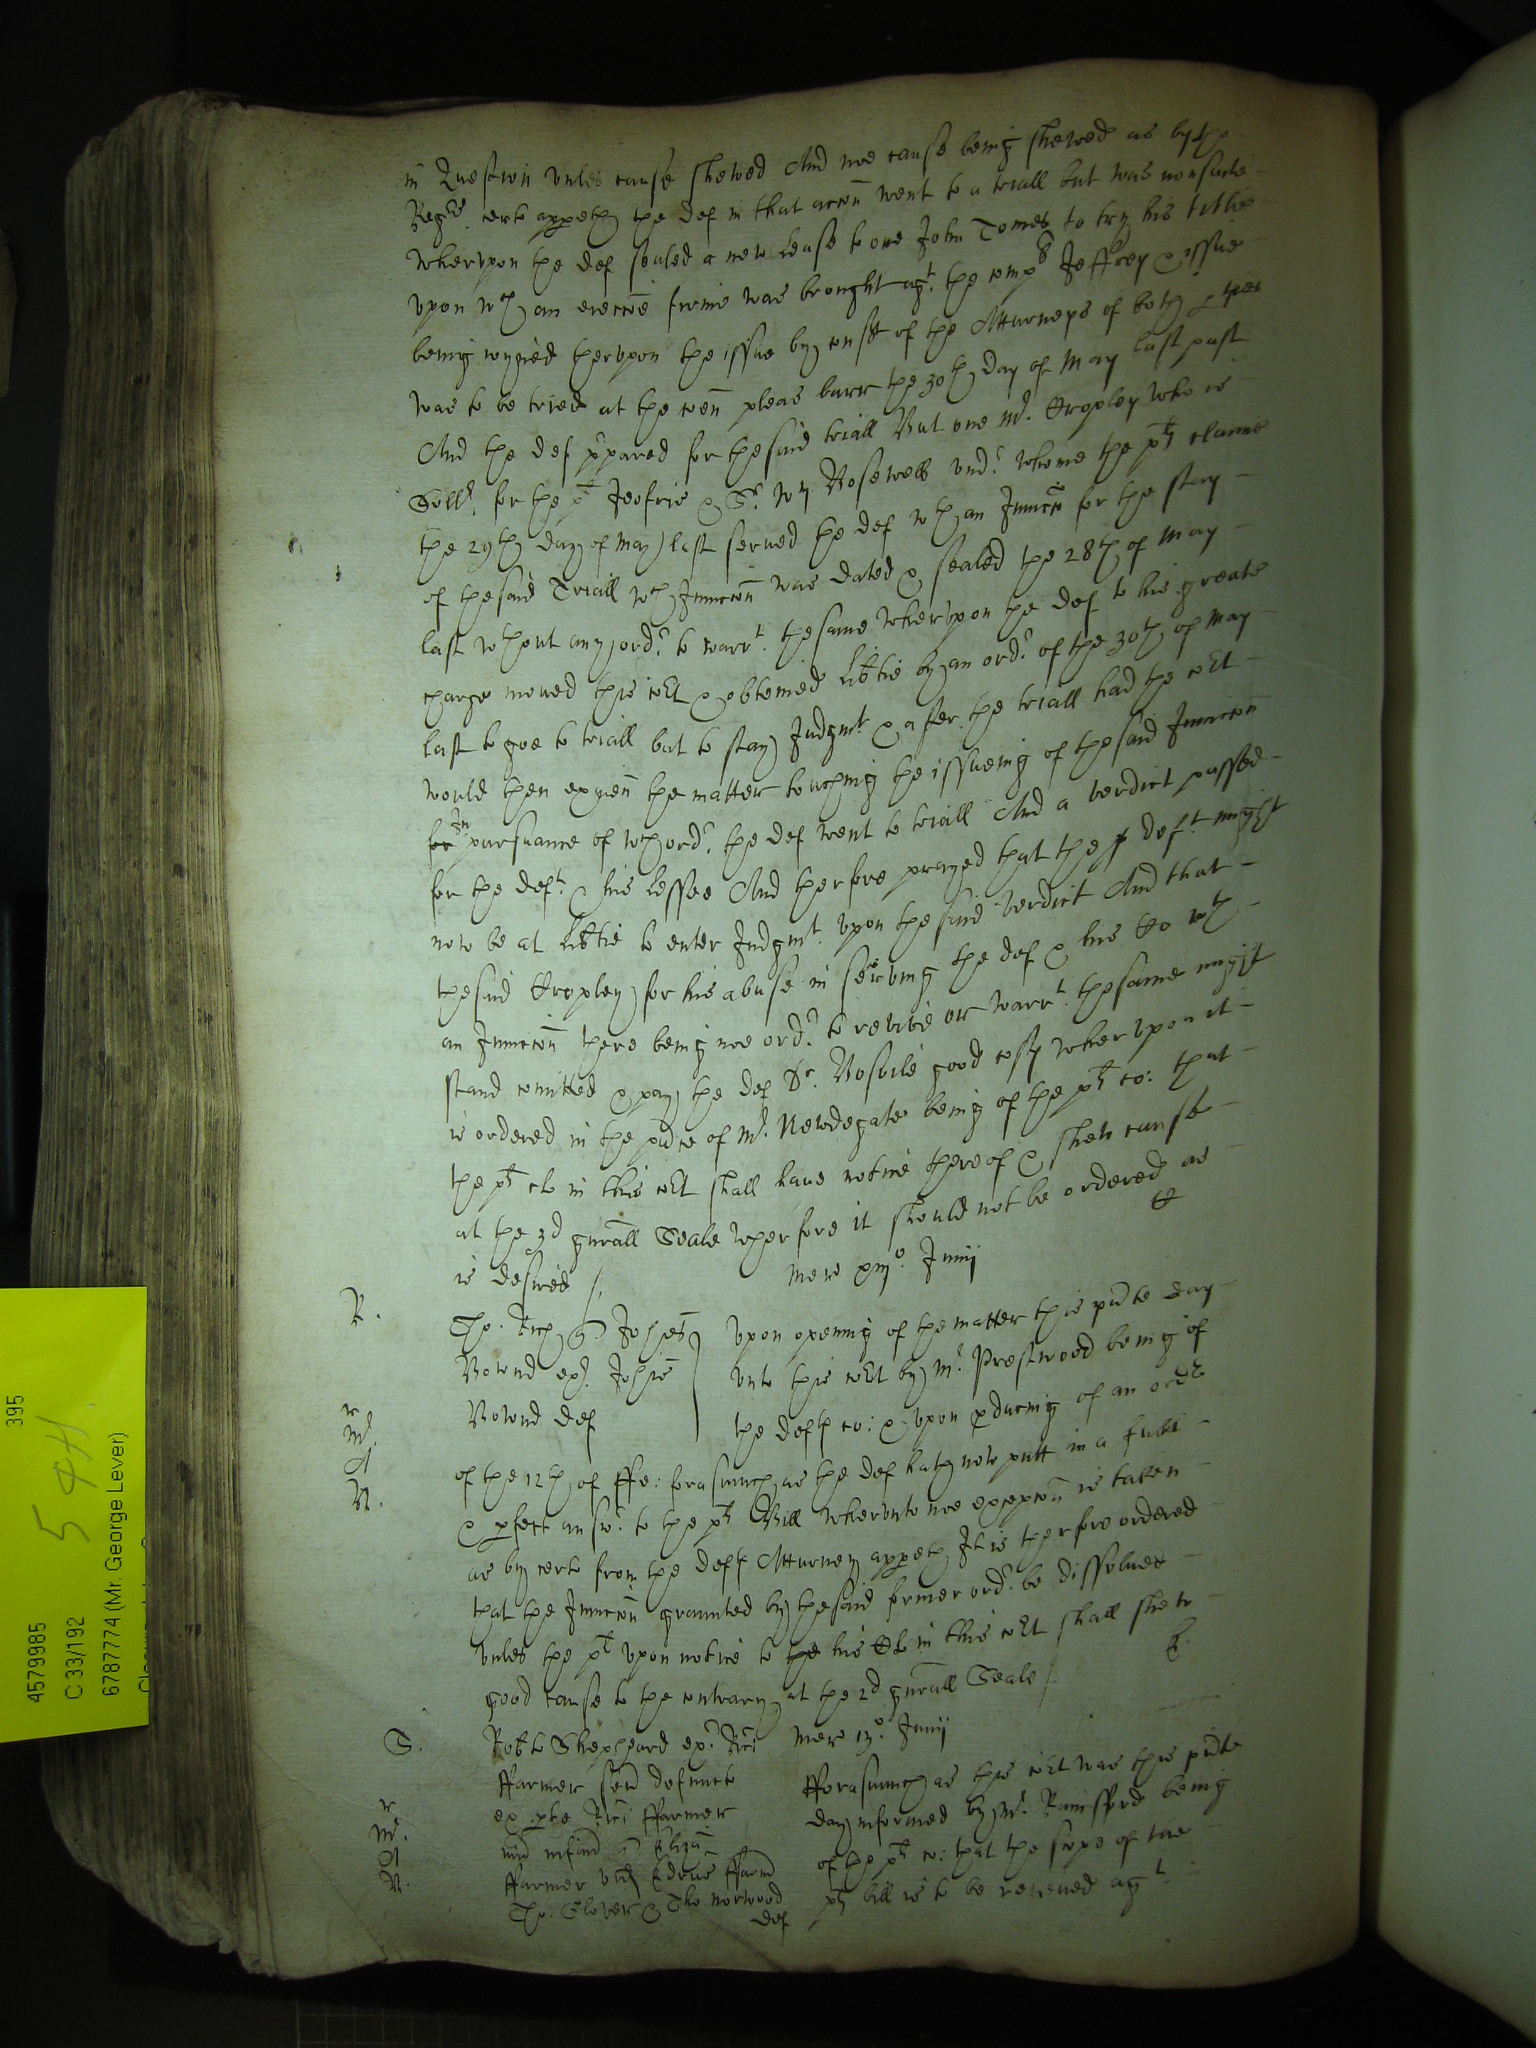 in Question vnles cause shewed And noe cause being shewed as by the
Regrs certe appeth the def in that accon went to a triall but was nonsuite
Wherevpon the def sealed a new lease to one John Tomes to try his title
vpon wch an eieccoe firme was brought agt the compt Jeffrey & issue
being ioyned thervpon the issue by const of the Atturneys of both pties
was to be tried at the coen pleas barr the 30th day of May last past
And the def ppared for the said triall But one Mr. Cropley who is
Sollr. for the pt Jeofrie & Sr. Wm Rosewell vndr. whome the pts claime
the 29th day of May last serued the def wth an Iniuccon for the stay
of the said Triall wch Iniuccon was dated & sealed the 28th of May
last wthout any ordr. to warrt. the same Wherevpon the def to his greate
charge moued this cort & obteined lib'tie by an ordr. of the 30th of May
last to goe to triall but to stay Judgmt & after the triall had the cort
would then exaien the matter touching the issueing of the said Iniuccon
In pursuance of wch ordr. the def went to triall And a verdict passed
for the deft. & his lessee And therfore prayed that the deft might
now be at lib'tie to enter Judgmt. vpon the said verdict And that
the said Cropley for his abuse in serving the def & his wth
an Iniuccon there being noe ordr. to revive or warrt. the same might
stand comitted & pay the def good costs Wherevpon it
is ordered in the pnce of Mr. Newdegate being of the pts co: that
the pts clr in this cort shall haue notice thereof & shew cause
at the 3d gnrall Seale wherfore it should not be ordered as
is desired /
Merc xiijo. Junij
R.
Tho. Rich Johes
Bownd exr. Johis
Bownd def
Vpon opening of the matter this pnte day
vnto this cort by Mr. Prestwood being of
the defts co: & vpon pducing of an ordr
of the 12th of ffe: forasmuch as the def hath now putt in a full
& pfect answr. to the pts Bill wherevnto noe excepcon is taken
as by certe from the defts Atturney appeth It is therfore ordered
that the Iniuccon graunted by the said former ordr. be dissolued
vnles the pt vpon notice to his Clr in this cort shall shew
good cause to the contrary at the 2d gnrall Seale /
S.
Robto Shepheard exr. Rici
ffarmer sen defuncto
ex pte Rici ffarmer
Eliza
ffarmer vid
Tho. Glover & Tho Norwood
def
Merc 13o. Junij
fforasmuch as this cort was this pnte
day informed by Mr. Rainsford being
of the pts co: that the scope of the
pts bill is to be releeued agt
395
544.
4579985
C 33/192
6787774 (Mr. George Lever)